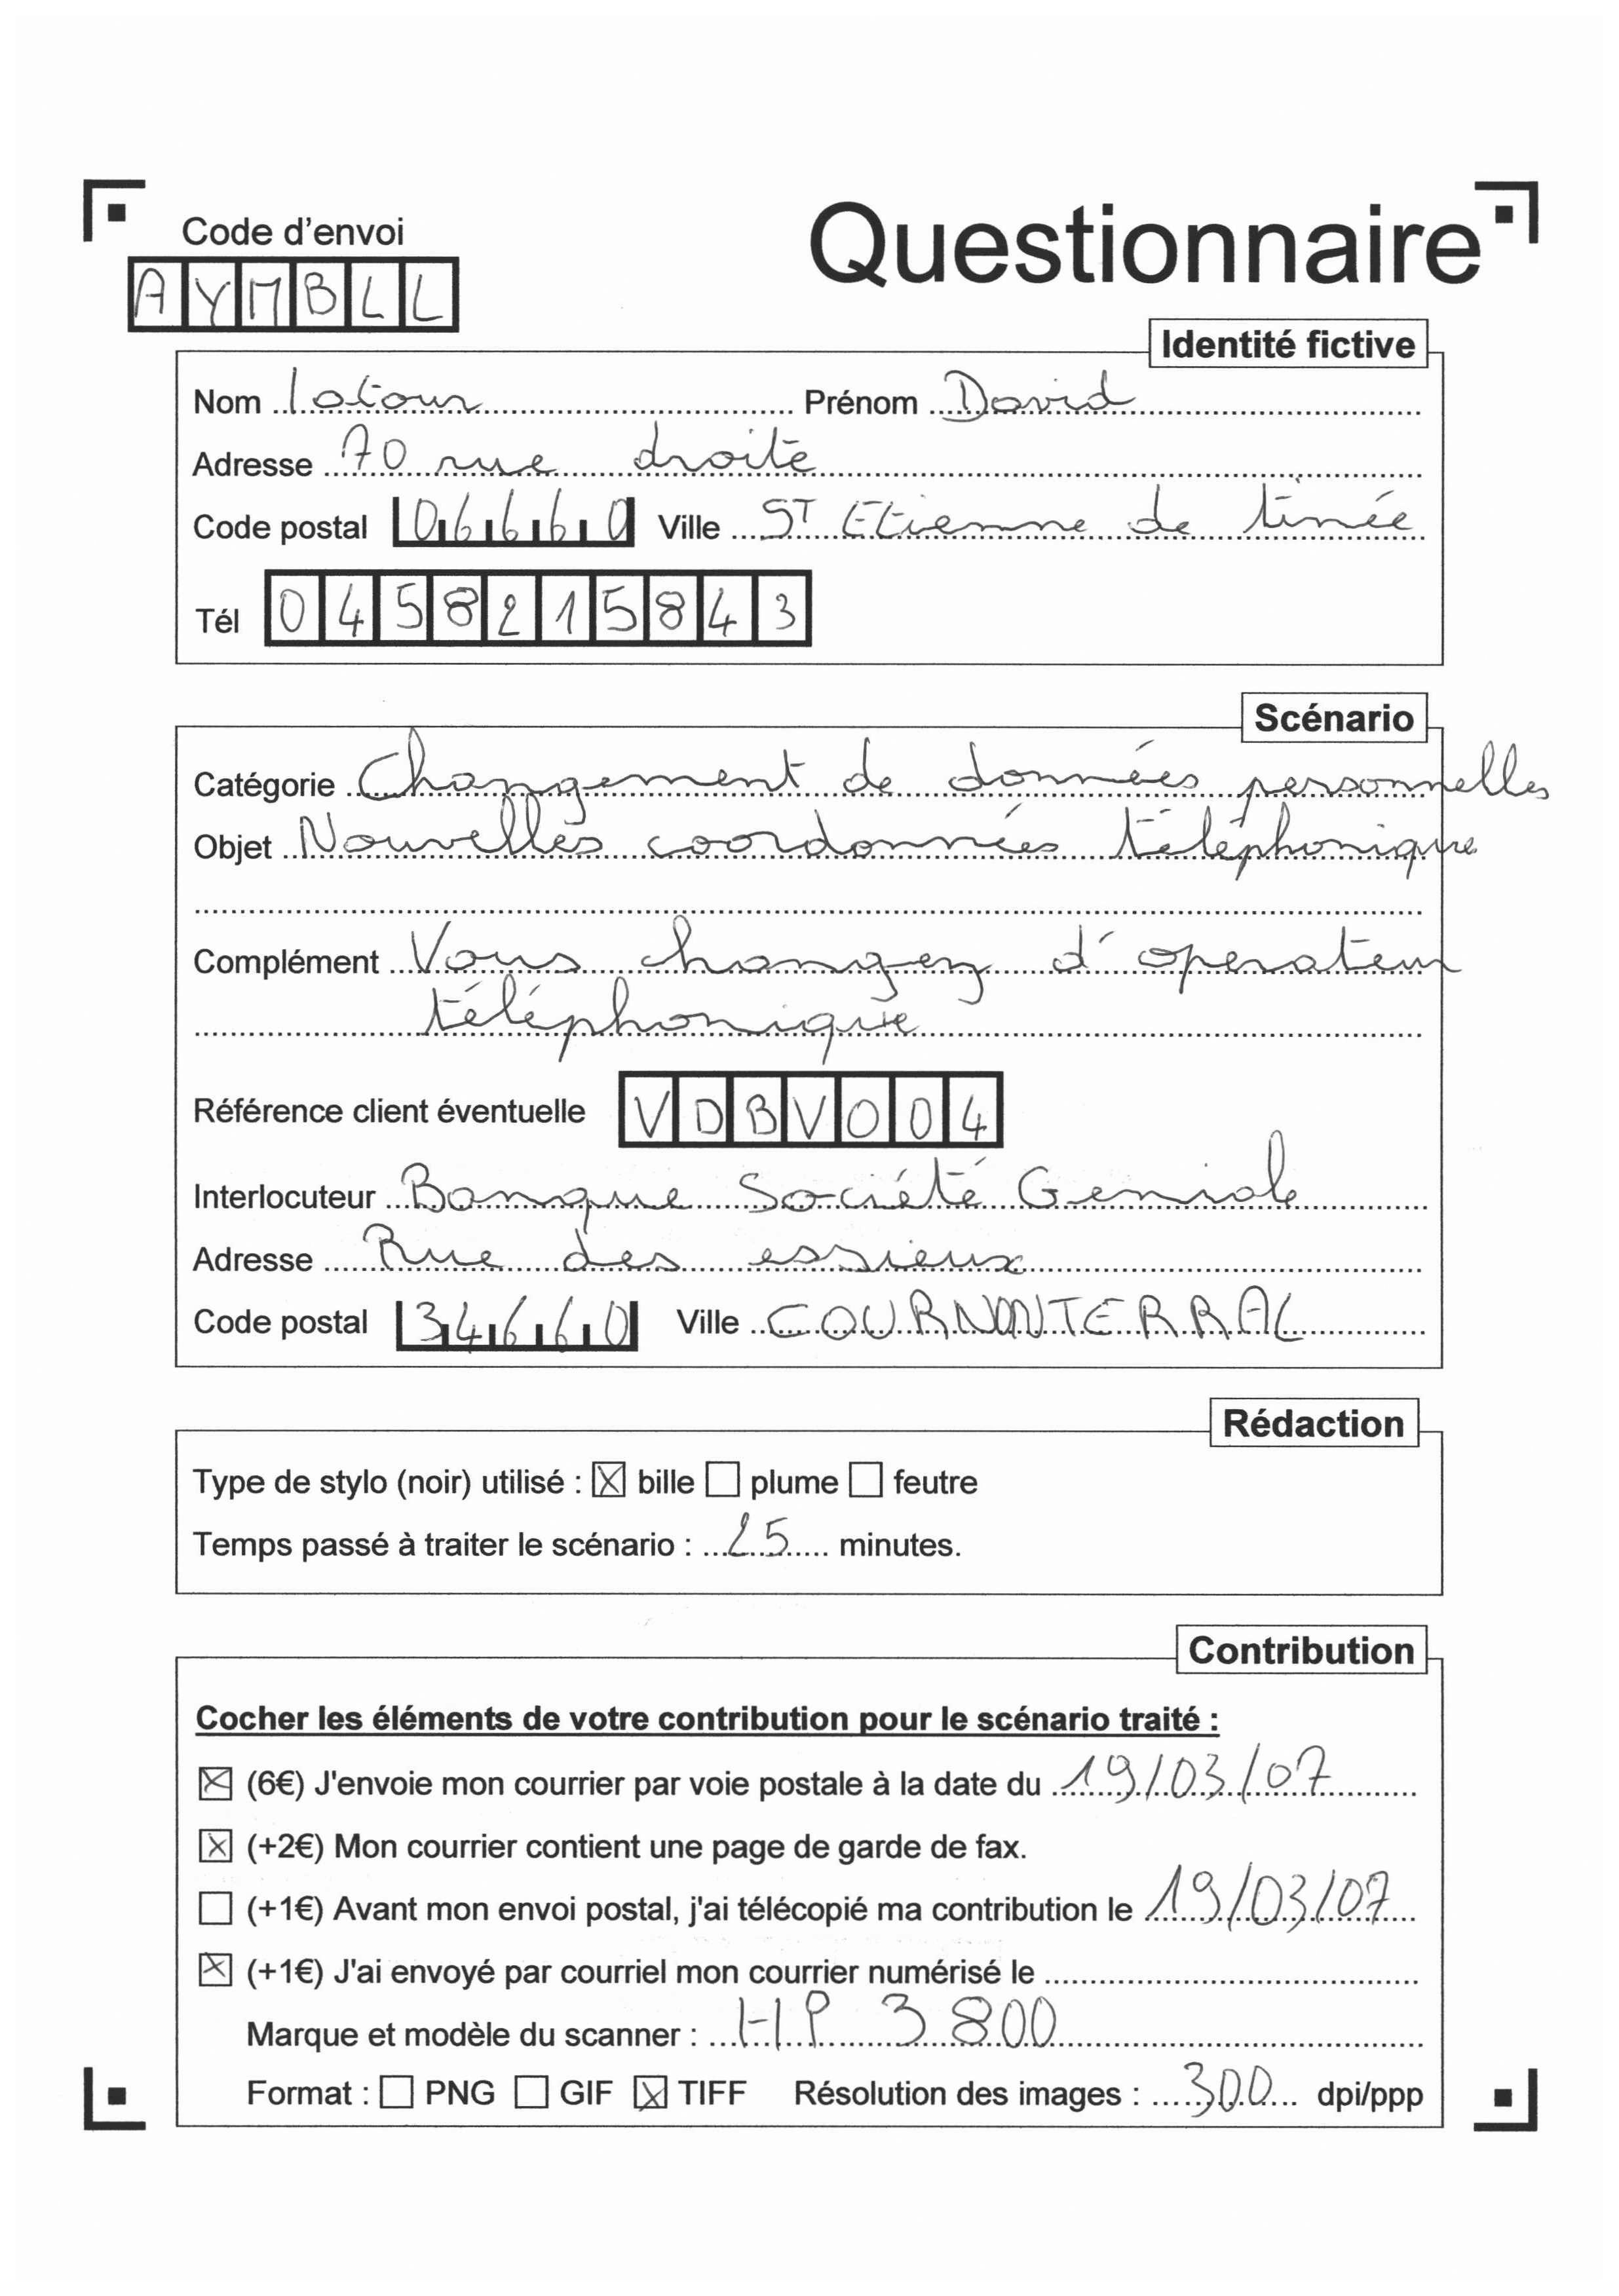 Code d'envoi
Questionnaire
AYMBLL
Identité fictive
Nom latour Prénom David
Adresse 70 rue droite
Code postal 06660 Ville ST Etienne de tinée
Tél 0458215843
Scénario
Catégorie Changement de données personnelles
Objet Nouvelles coordonnées téléphonique
Complément Vous changez d'operateur
téléphonique
Référence client éventuelle VDBV004
Interlocuteur Banque Société Geniale
Adresse Rue des essieux
Code postal 34660 Ville COURNONTERRAL
Rédaction
Type de stylo (noir) utilisé : ☒ bille ☐ plume ☐ feutre
Temps passé à traiter le scénario : 25 minutes.
Contribution
Cocher les éléments de votre contribution pour le scénario traité :
☒ (6€) J'envoie mon courrier par voie postale à la date du 19/03/07
☒ (+2€) Mon courrier contient une page de garde de fax.
☐ (+1€) Avant mon envoi postal, j'ai télécopié ma contribution le 19/03/07
☒ (+1€) J'ai envoyé par courriel mon courrier numérisé le
Marque et modèle du scanner : HP 3800
Format : ☐ PNG ☐ GIF ☒ TIFF Résolution des images : 300 dpi/ppp